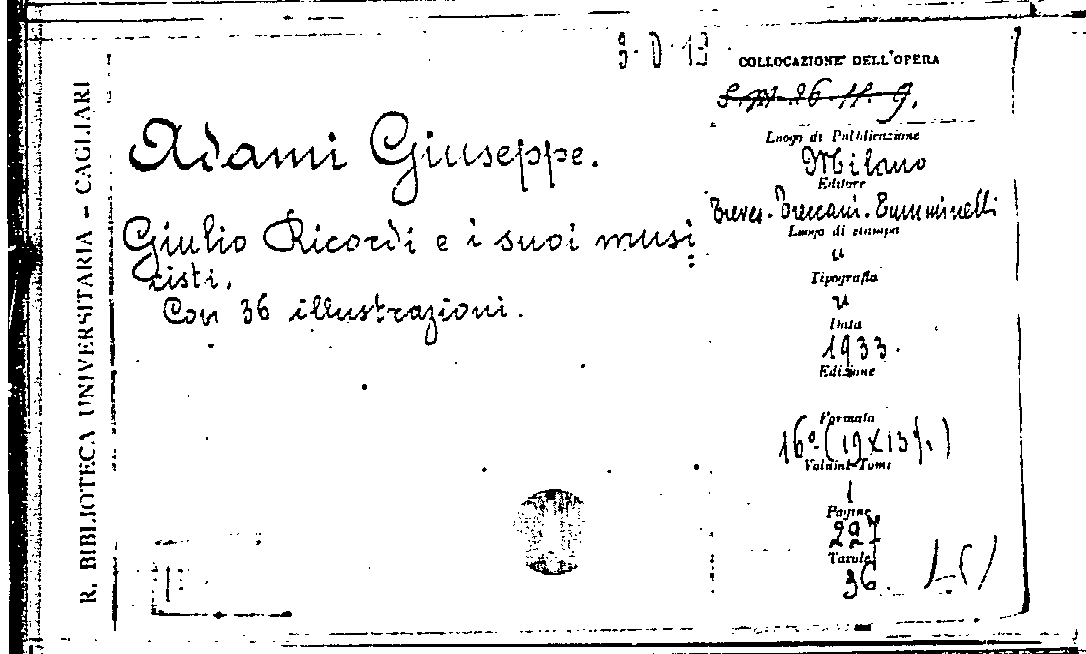 R. BIBLIOTECA UNIVERSITARIA - CAGLIARI
Adami Giuseppe.
Giulio Ricordi e i suoi musi
cisti.
Con 36 illustrazioni.
3. D. 13
COLLOCAZIONE DELL'OPERA
Luogo di Pubblicazione
Milano
Editore
Treves. Treccani. Tumminelli
Luogo di stampa
"
Tipografia
"
Data
1933.
Edizione
Formato
16º (19x13)
Volumi-Tomi
1
Pagine
227
Tavole
36